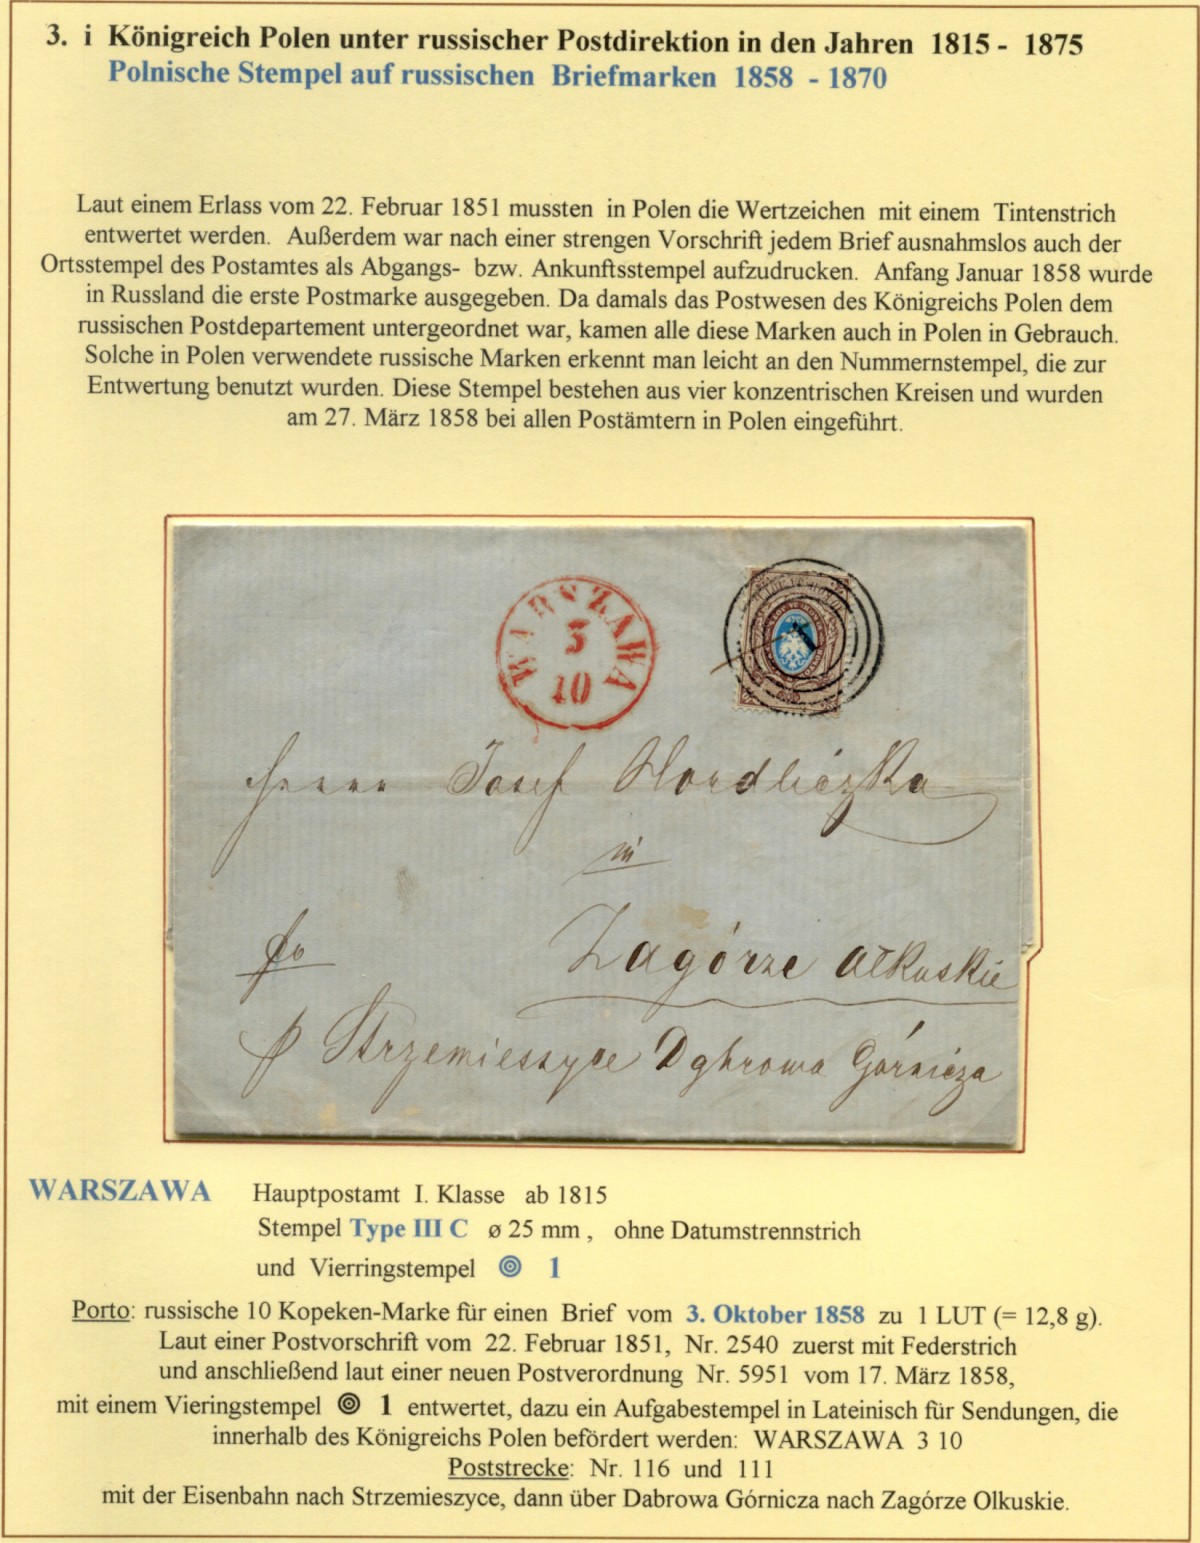 3. i Königreich Polen unter russischer Postdirektion in den Jahren 1815 - 1875
Polnische Stempel auf russischen Briefmarken 1858 - 1870
Laut einem Erlass vom 22. Februar 1851 mussten in Polen die Wertzeichen mit einem Tintenstrich
entwertet werden. Außerdem war nach einer strengen Vorschrift jedem Brief ausnahmslos auch der
Ortsstempel des Postamtes als Abgangs- bzw. Ankunftsstempel aufzudrucken. Anfang Januar 1858 wurde
in Russland die erste Postmarke ausgegeben. Da damals das Postwesen des Königreichs Polen dem
russischen Postdepartement untergeordnet war, kamen alle diese Marken auch in Polen in Gebrauch.
Solche in Polen verwendete russische Marken erkennt man leicht an den Nummernstempel, die zur
Entwertung benutzt wurden. Diese Stempel bestehen aus vier konzentrischen Kreisen und wurden
am 27. März 1858 bei allen Postämtern in Polen eingeführt.
WARSZAWA
3
10
1
Herrn Josef
in
Zagórze
fro
p Strzemieszyce Dąbrowa Górnicza
WARSZAWA Hauptpostamt I. Klasse ab 1815
Stempel Type III C ø 25 mm , ohne Datumstrennstrich
und Vierringstempel 1
Porto: russische 10 Kopeken-Marke für einen Brief vom 3. Oktober 1858 zu 1 LUT (= 12,8 g).
Laut einer Postvorschrift vom 22. Februar 1851, Nr. 2540 zuerst mit Federstrich
und anschließend laut einer neuen Postverordnung Nr. 5951 vom 17. März 1858,
mit einem Vieringstempel 1 entwertet, dazu ein Aufgabestempel in Lateinisch für Sendungen, die
innerhalb des Königreichs Polen befördert werden: WARSZAWA 3 10
Poststrecke: Nr. 116 und 111
mit der Eisenbahn nach Strzemieszyce, dann über Dabrowa Górnicza nach Zagórze Olkuskie.